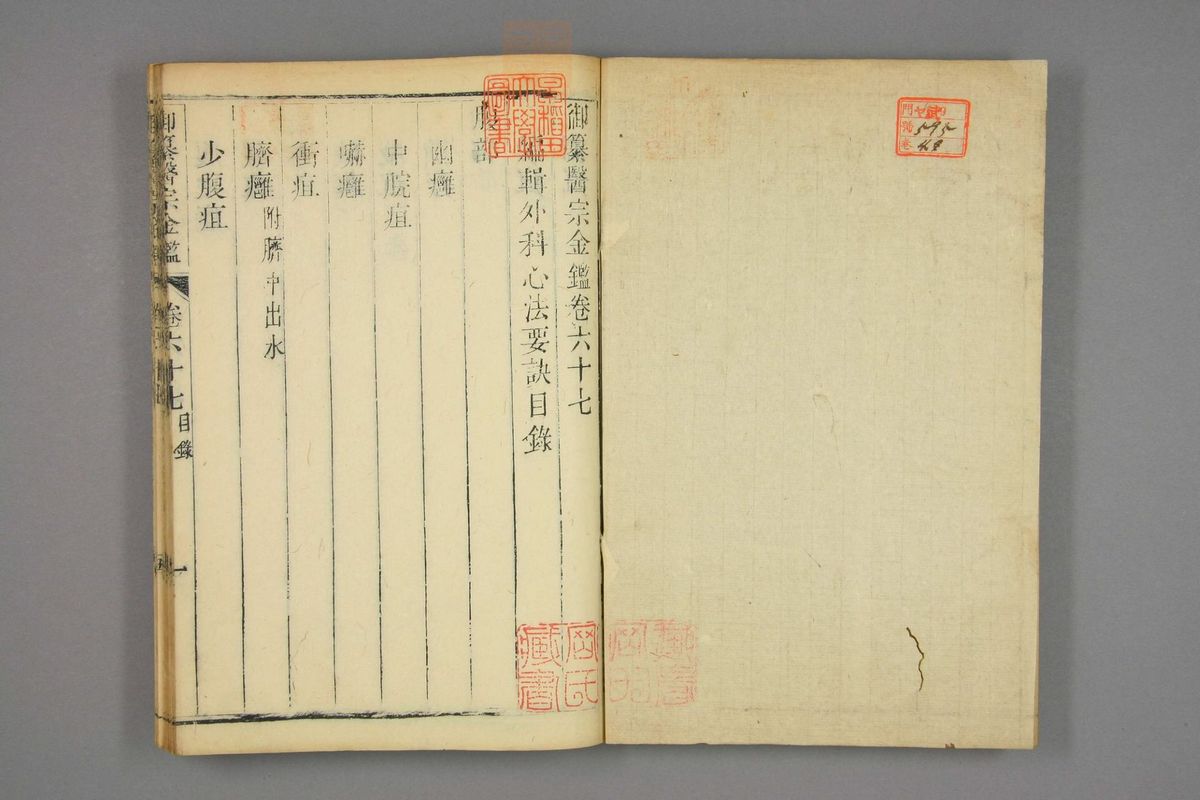 御纂醫宗金鑑卷六十七
編輯外科心法要訣目錄
腹部
幽癰
中脘疽
嚇癰
衝疽
臍癰 附臍中出水
少腹疽
御纂醫宗金鑑 卷六十七 目錄 一
早稲田大學圖書
藏書
門 號 卷
595